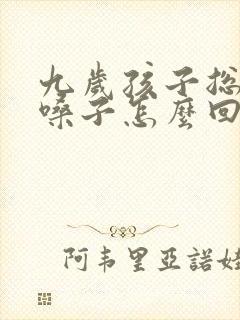 九歲孩子總
嗓子怎麼回
阿韦里亞諾娃